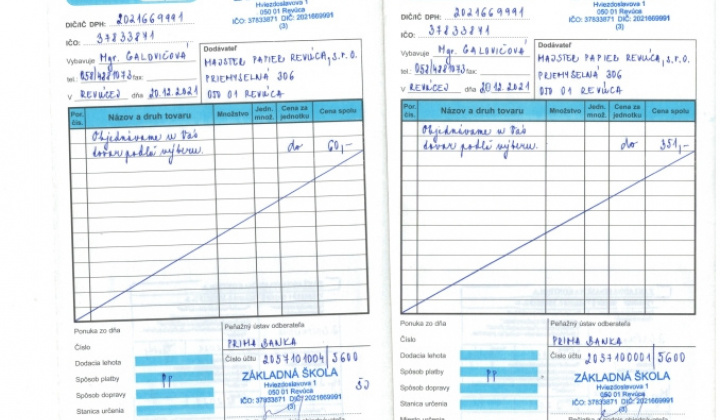 Hviezdoslavova 1
050 01 Revúca
IČO: 37833871 DIČ: 2021669991
(3)
DIČ/IČ DPH: 2021669991
IČO: 37833871
Vybavuje Mgr. GALOVIČOVÁ
tel.: 058/4281073 fax:
V REVÚCEJ dňa 20.12.2021
Dodávateľ
MAJSTER PAPIER REVÚCA, s.r.o.
PRIEMYSELNÁ 306
050 01 REVÚCA
Por. čís. Názov a druh tovaru Množstvo Jedn. množ. Cena za jednotku Cena spolu
Objednávame u Vás
tovar podľa výberu. do 60,-
Ponuka zo dňa
Číslo
Dodacia lehota
Spôsob platby PP
Spôsob dopravy
Stanica určenia
Peňažný ústav odberateľa
PRIMA BANKA
Číslo účtu 2057101004/5600
ZÁKLADNÁ ŠKOLA
Hviezdoslavova 1
050 01 Revúca
IČO: 37833871 DIČ: 2021669991
(3)
Hviezdoslavova 1
050 01 Revúca
IČO: 37833871 DIČ: 2021669991
(3)
DIČ/IČ DPH: 2021669991
IČO: 37833871
Vybavuje Mgr. GALOVIČOVÁ
tel.: 058/4281073 fax:
V REVÚCEJ dňa 20.12.2021
Dodávateľ
MAJSTER PAPIER REVÚCA, s.r.o.
PRIEMYSELNÁ 306
050 01 REVÚCA
Por. čís. Názov a druh tovaru Množstvo Jedn. množ. Cena za jednotku Cena spolu
Objednávame u Vás
tovar podľa výberu. do 351,-
Ponuka zo dňa
Číslo
Dodacia lehota
Spôsob platby PP
Spôsob dopravy
Miesto určenia
Peňažný ústav odberateľa
PRIMA BANKA
Číslo účtu 2057100001/5600
ZÁKLADNÁ ŠKOLA
Hviezdoslavova 1
050 01 Revúca
IČO: 37833871 DIČ: 2021669991
(3)